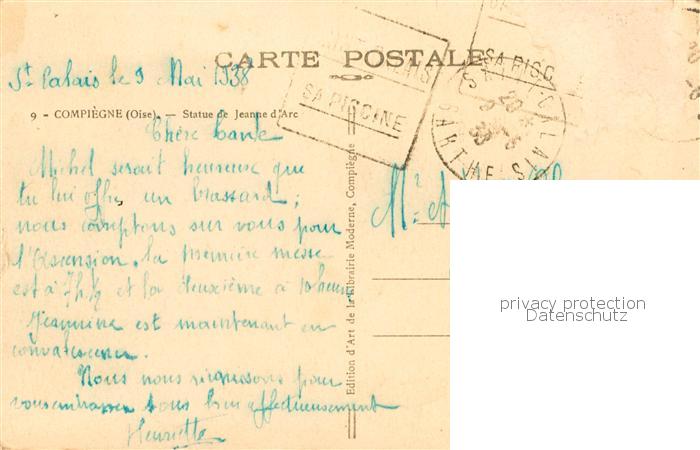 CARTE POSTALE
St Palais le 9 Mai 1938
SA PISCINE
SA PISC
9 - COMPIÈGNE (Oise). — Statue de Jeanne d'Arc
Chère Tante
Michel serait heureuse que
tu lui offre un brassard ;
nous comptons sur vous pour
l'Ascension. la première messe
est à 7h ½ et la deuxième à 10 heures
Jeannine est maintenant en
convalescence.
Nous nous réunissons pour
vous embrasser tous bien affectueusement
Henriette
Edition d'Art de la Librairie Moderne, Compiègne
privacy protection
Datenschutz